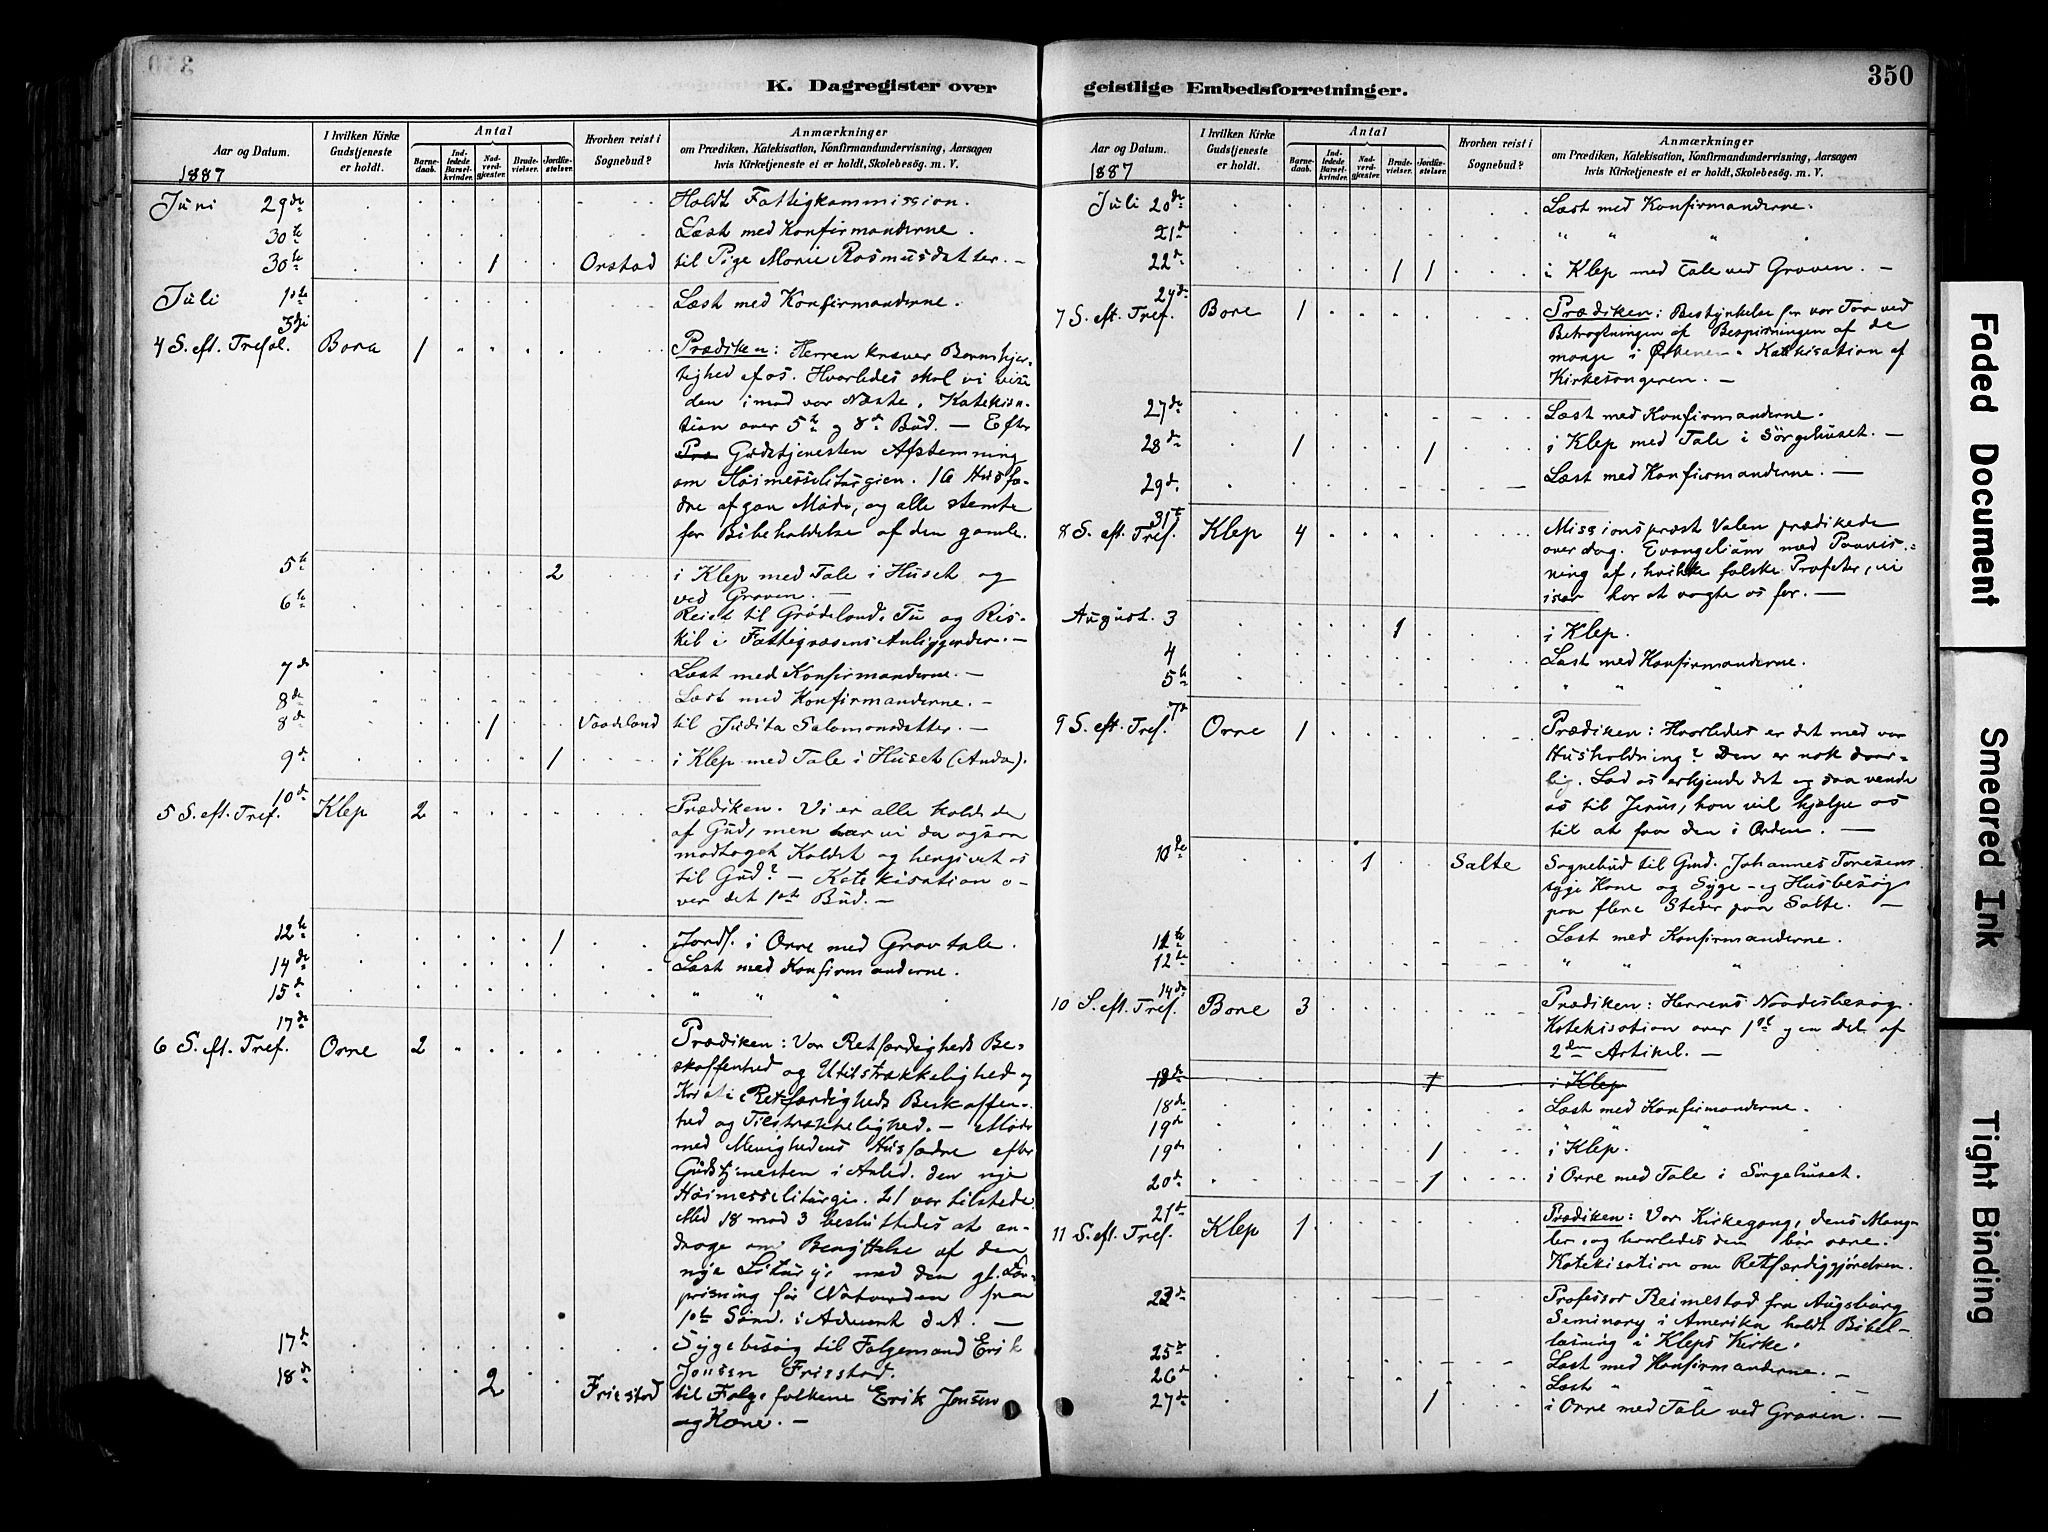 350
K. Dagregister over geistlige Embedsforretninger.
Aar og Datum.
1887
I hvilken Kirke Gudstjeneste er holdt.
Antal
Barnedaab.
Indledede Barselkvinder.
Nadverdgjester.
Brudevielser.
Jordfæstelser.
Hvorhen reist i Sognebud?
Anmærkninger
om Prædiken, Katekisation, Konfirmandundervisning, Aarsagen
hvis Kirketjeneste ei er holdt, Skolebesög. m. V.
Juni 29de Holdt Fattigkommission.
30te Læst med Konfirmanderne.
30te 1 Orstad til Pige Marie Rasmusdatter. –
Juli 1ste Læst med Konfirmanderne.
3die
4 S. eft. Tref. Bore 1 Prædiken: Herren kræver Barmhjer-
tighed af os. Hvorledes skal vi vise
den imod vor Næste. Katekisa-
tion over 5te og 8de Bud. – Efter
Pra Gudstjenesten Afstemning
om Høimesseliturgien. 16 Husfæ-
dre afgav Møde, og alle stemte
for Bibeholdelse af den gamle.
5te 2 i Klep med Tale i Huset og
ved Graven. –
6te Reist til Grødeland, Tu og Ris-
kil i Fattigvæsens Anliggender. –
7de Læst med Konfirmanderne. –
8de Læst med Konfirmanderne. –
8de 1 Vaadeland til Judita Salomonsdatter. –
9de 1 i Klep med Tale i Huset (Anda).
10de
5 S. eft. Tref. Klep 2 Prædiken. Vi er alle kaldede
af Gud, men har vi da ogsaa
modtaget Kaldet og hengivet os
til Gud? – Katekisation o-
ver det 1ste Bud. –
12te 1 Jordf. i Orre med Gravtale.
14de Læst med Konfirmanderne.
15de " " "
17de
6 S. eft. Tref. Orre 2 Prædiken: Vor Retfærdigheds Be-
skaffenhed og Utilstrækkelighed og
Kristi Retfærdigheds Beskaffen-
hed og Tilstrækkelighed. – Møde
med Menighedens Husfædre efter
Gudstjenesten i Anled. den nye
Høimesseliturgi. 21 var tilstede
Med 18 mod 3 besluttedes at an-
drage om Benyttelse af den
nye Liturgi med den gl. Lov-
prisning før Nadverden fra
1ste Sønd. i Advent d.A. –
17de Sygebesøg til Følgemand Erik
Jonsen Friestad.
18de 2 Friestad til Følgefolkene Erik Jonsen
og Kone. –
350
Aar og Datum.
1887
I hvilken Kirke Gudstjeneste er holdt.
Antal
Barnedaab.
Indledede Barselkvinder.
Nadverdgjester.
Brudevielser.
Jordfæstelser.
Hvorhen reist i Sognebud?
Anmærkninger
om Prædiken, Katekisation, Konfirmandundervisning, Aarsagen
hvis Kirketjeneste ei er holdt, Skolebesög. m. V.
Juli 20de Læst med Konfirmanderne.
21de " " " "
22de 1 1 i Klep med Tale ved Graven. –
24de
7 S. eft. Tref. Bore 1 Prædiken: Bestyrkelse for vor Tro ved
Betragtningen af Bespisningen af de
mange i Ørkenen. Katekisation af
Kirkesangeren. –
27de Læst med Konfirmanderne.
28de 1 1 i Klep med Tale i Sørgehuset. –
29de Læst med Konfirmanderne. –
31te
8 S. eft. Tref. Klep 4 Missionsprest Valen prædikede
over dag. Evangelium med Paavis-
ning af, hvilke falske Profeter, vi
især har at vogte os for. –
August. 3 1 i Klep.
4 Læst med Konfirmanderne.
5te " " " "
7de
9 S. eft. Tref. Orre 1 Prædiken: Hvorledes er det med vor
Husholdning? Den er nok daar-
lig. Lad os erkjende det og saa vende
os til Jesus, han vil hjælpe os
til at faa den i Orden. –
10de 1 Salte Sognebud til Gmd. Johannes Toresens
syge Kone og Syge- og Husbesøg
paa flere Steder paa Salte. –
11te Læst med Konfirmanderne.
12te " " "
14de
10 S. eft. Tref. Bore 3 Prædiken: Herrens Naadesbesøg.
Katekisation over 1ste og en del af
2den Artikel. –
18de 1 i Klep
18de Læst med Konfirmanderne.
19de " " " "
19de 1 i Klep.
20de 1 i Orre med Tale i Sørgehuset.
21de
11 S. eft. Tref. Klep 1 Prædiken: Vor Kirkegang, dens Mang-
ler, og hvorledes den bør være.
Katekisation om Retfærdiggjørelsen.
23de Professor Reimestad fra Augsburg
Seminary i Amerika holdt Bibel-
læsning i Kleps Kirke.
25de Læst med Konfirmanderne. –
26de Læst " "
27de 1 i Orre med Tale ved Graven. –
Faded Document
Smeared Ink
Tight Binding